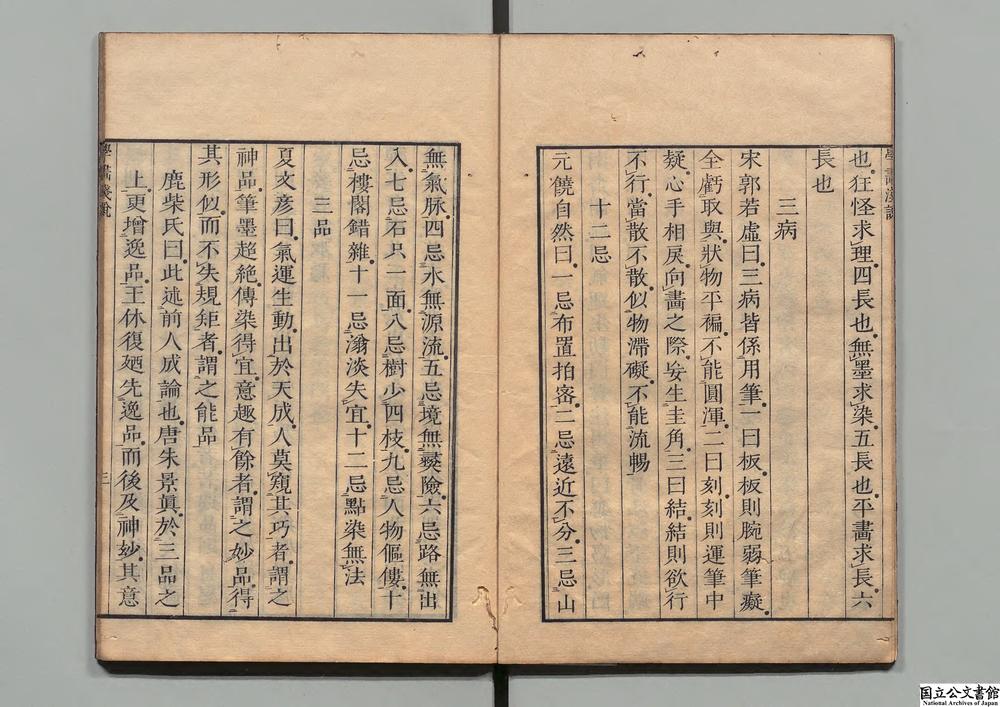 也。狂怪求理。四長也。無墨求染。五長也。平畫求長。六
長也
三病
宋郭若虛曰三病皆係用筆一曰板。板則腕弱筆癡。
全虧取與。狀物平褊。不能圓渾。二曰刻。刻則運筆中
疑。心手相戾。向畫之際。妄生圭角。三曰結。結則欲行
不行。當散不散。似物滯礙。不能流暢
十二忌
元饒自然曰。一忌布置拍密。二忌遠近不分。三忌山
無氣脉。四忌水無源流。五忌境無夷險。六忌路無出
入。七忌石只一面。八忌樹少四枝。九忌人物傴僂。十
忌樓閣錯雜。十一忌滃淡失宜。十二忌點染無法
三品
夏文彦曰。氣運生動。出於天成。人莫窺其巧者。謂之
神品。筆墨超絶。傳染得宜。意趣有餘者。謂之妙品。得
其形似。而不失規矩者。謂之能品
鹿柴氏曰。此述前人成論也。唐朱景眞。於三品之
上。更增逸品。王休復廼先逸品。而後及神妙。其意
學畫淺說
三
国立公文書館
National Archives of Japan